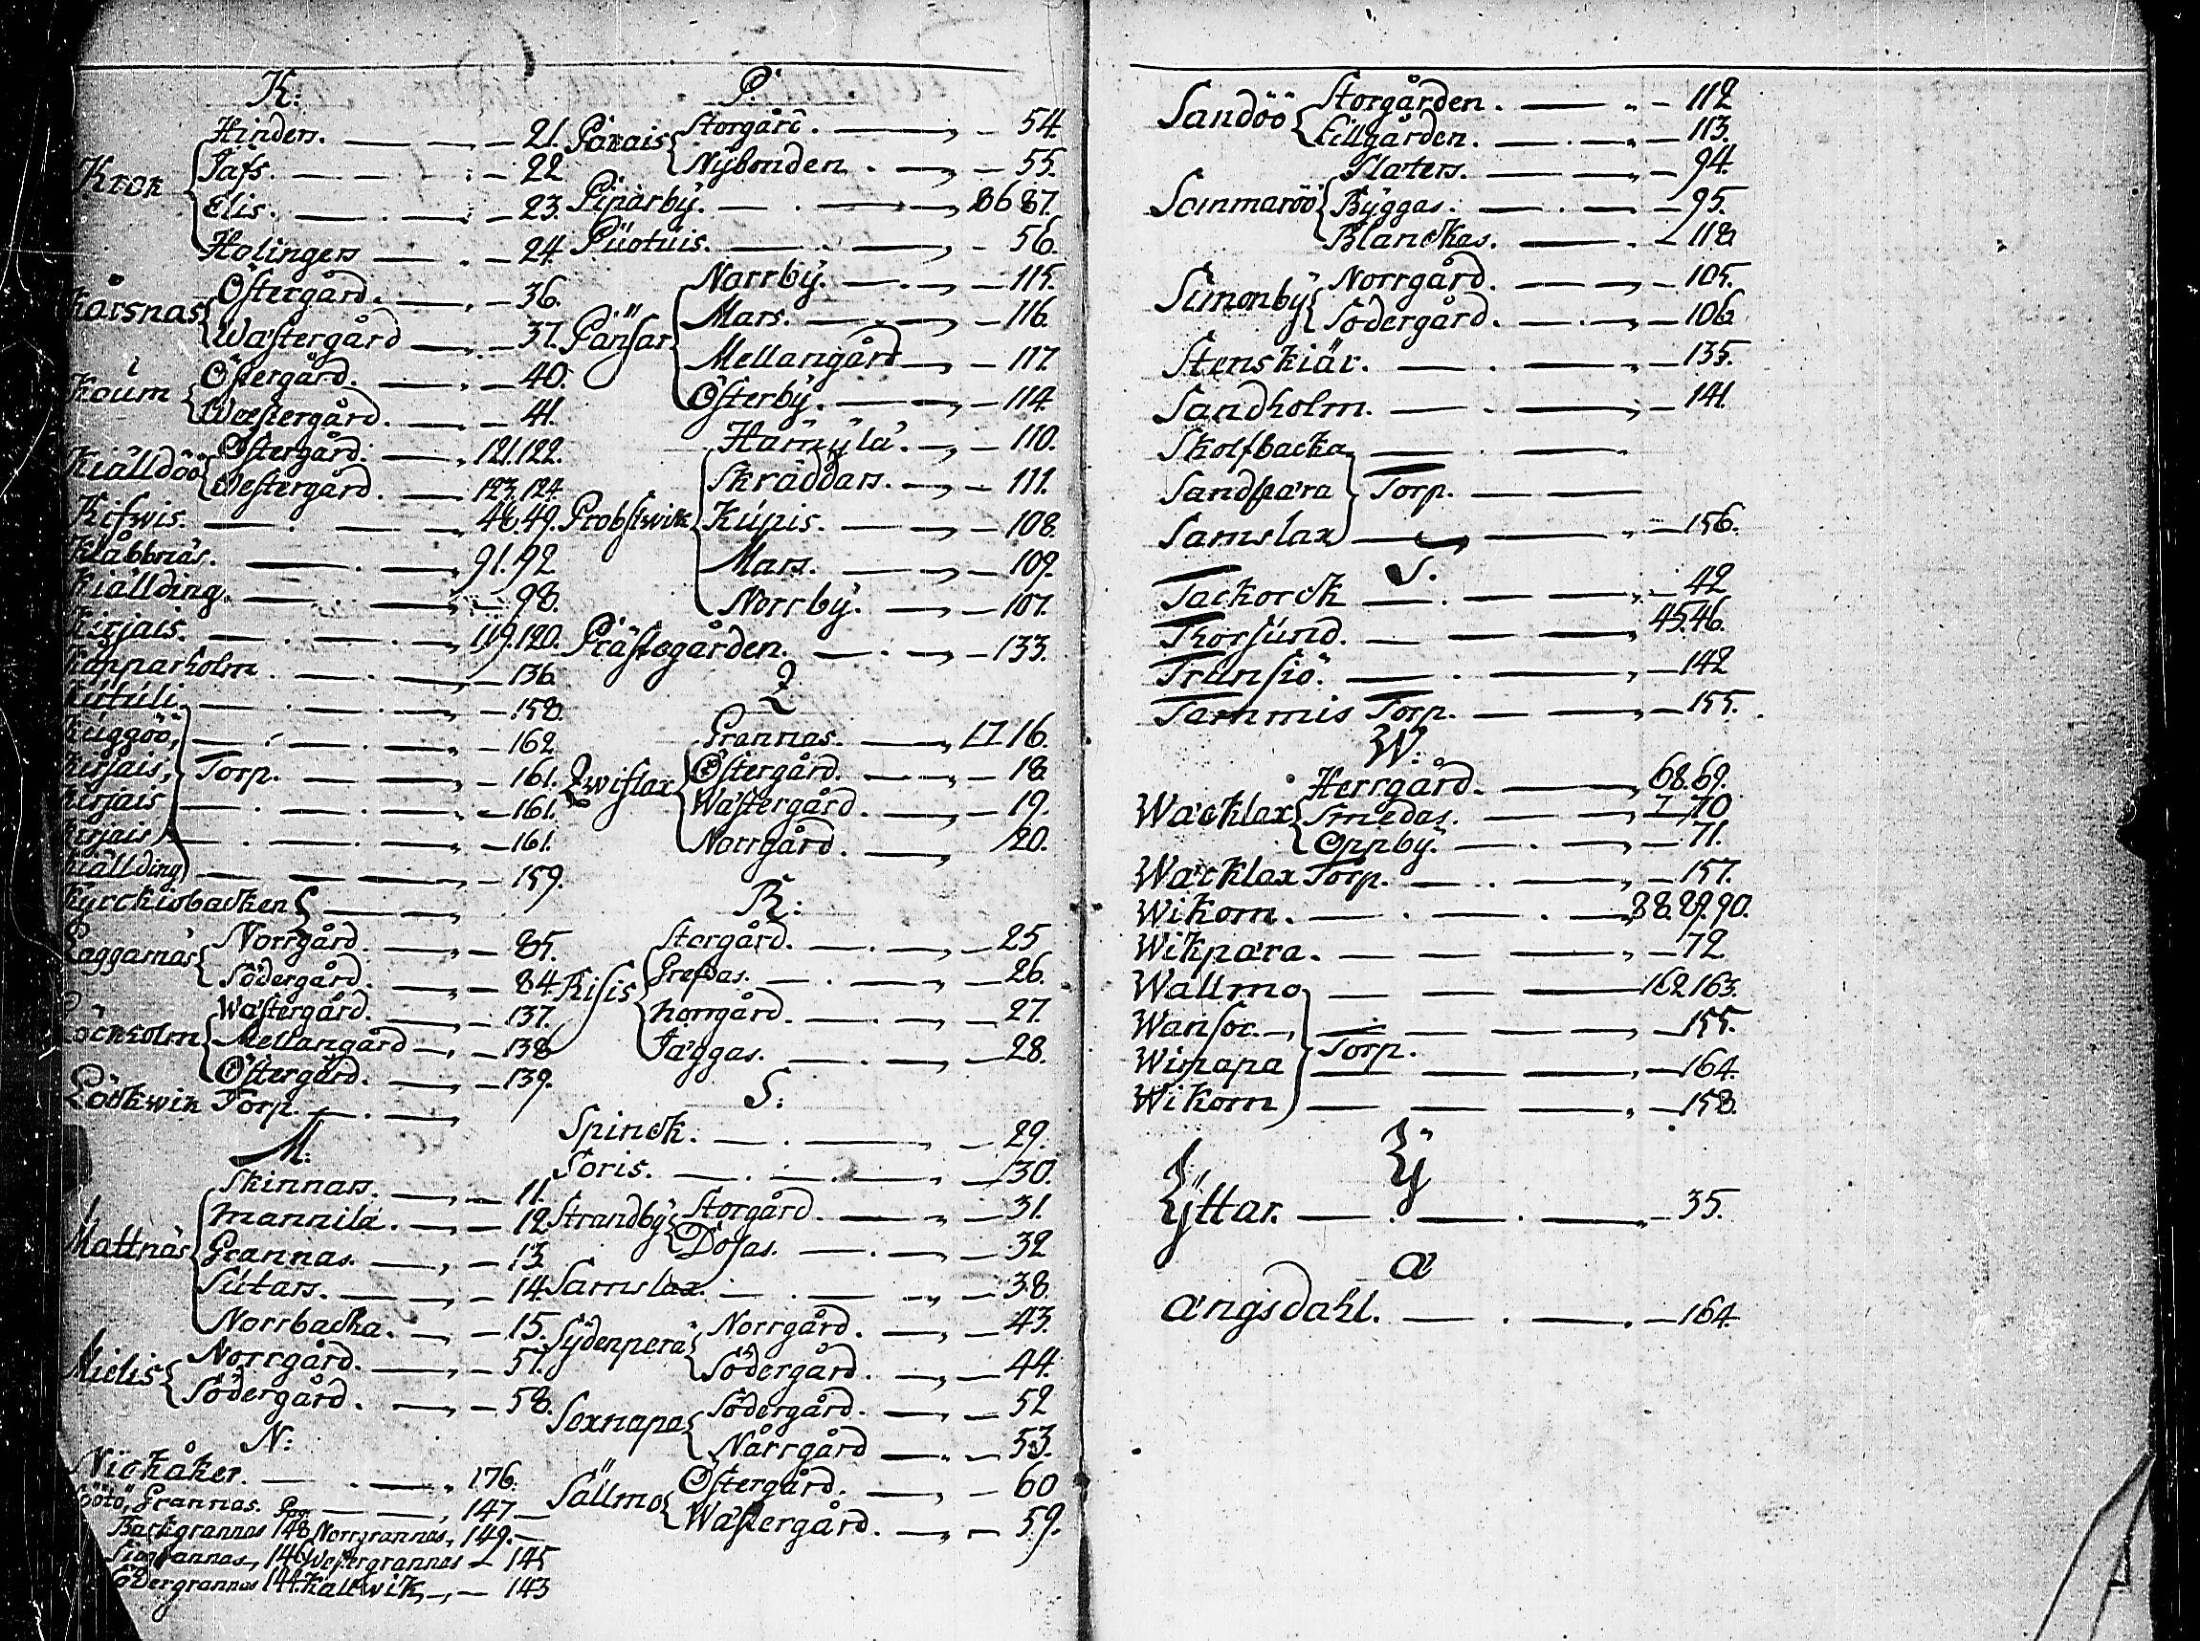 K:
Hinders. 21.
Krok Jafs. 22
Elis. 23.
Holingers 24.
Kårsnäs Östergård. 36.
Wästergård 37.
Koum Östergård. 40.
Wästergård. 41.
Kiälldöö Östergård. 121.122.
Westergård. 123.124.
Kifwis. 48.49.
Klåbbnäs. 91.92
Kiällding. 98.
Kirjais. 119.120.
Kopparholm. 136.
Kutuli. 158.
Kuggöö, 162
Kirjais, Torp. 161.
Kirjais 161.
Kirjais 161.
Kiällding 159.
Kyrckiobacken
Laggarnäs Norrgård. 85.
Södergård. 84
Löckholm Wästergård. 137.
Mellangård 138
Östergård. 139.
Lökwik Torp.
M:
Skinnars. 11.
Mannila. 12
Mattnäs Grannas. 13
Sutars. 14
Norrbacka. 15.
Mielis Norrgård. 57.
Södergård. 58.
N:
Niokåker. 176.
Nötö, Grannas. 147
Backgrannas 148 Norrgrannas, 149.
Siögrannas, 146 Westergrannas 145
Södergrannas 144. Kallwik, 143
P.
Parais Storgård. 54.
Nybonden. 55.
Piparby. 86 87.
Puotuis. 56.
Norrby. 115.
Pänsar Mars. 116.
Mellangård 117
Österby. 114.
Hamylä. 110.
Skräddars. 111.
Probstwik Kupis. 108.
Mars. 109.
Norrby. 107.
Prästegården. 133.
Q
Grannas. 17 16.
Qwislax Östergård. 18.
Wästergård. 19.
Norrgård. 20.
R:
Storgård. 25
Grefsas. 26.
Risis Norrgård. 27.
Jäggas. 28.
S:
Spinck. 29.
Soris. 30.
Strandby Storgård. 31.
Dosas. 32
Samslax. 38.
Sydenperä Norrgård. 43.
Södergård. 44.
Sexnapa Södergård. 52
Nårrgård 53.
Sällmo Östergård. 60
Wästergård. 59.
Sandöö Storgården. 112
Lillgården. 113.
Slaters. 94.
Sommaröö Byggas. 95.
Blanckas. 118.
Simonby Norrgård. 105.
Södergård. 106
Stenskiär. 135.
Sandholm. 141.
Skolfbacka
Sandpära Torp.
Samslax 156.
T.
Tackorck 42
Thorsund. 45.46.
Trunsiö. 142
Tammis Torp. 155.
W:
Herrgård. 68.69.
Wäcklax Smedas. 70
Oppby. 71.
Wäcklax Torp. 157.
Wikom. 88.89.90.
Wikpära. 72
Wallmo 162 163.
Wansor. 155.
Torp.
Wipapa 164.
Wikom 158.
Y
Yttar. 35.
Æ
Ængsdahl. 164.